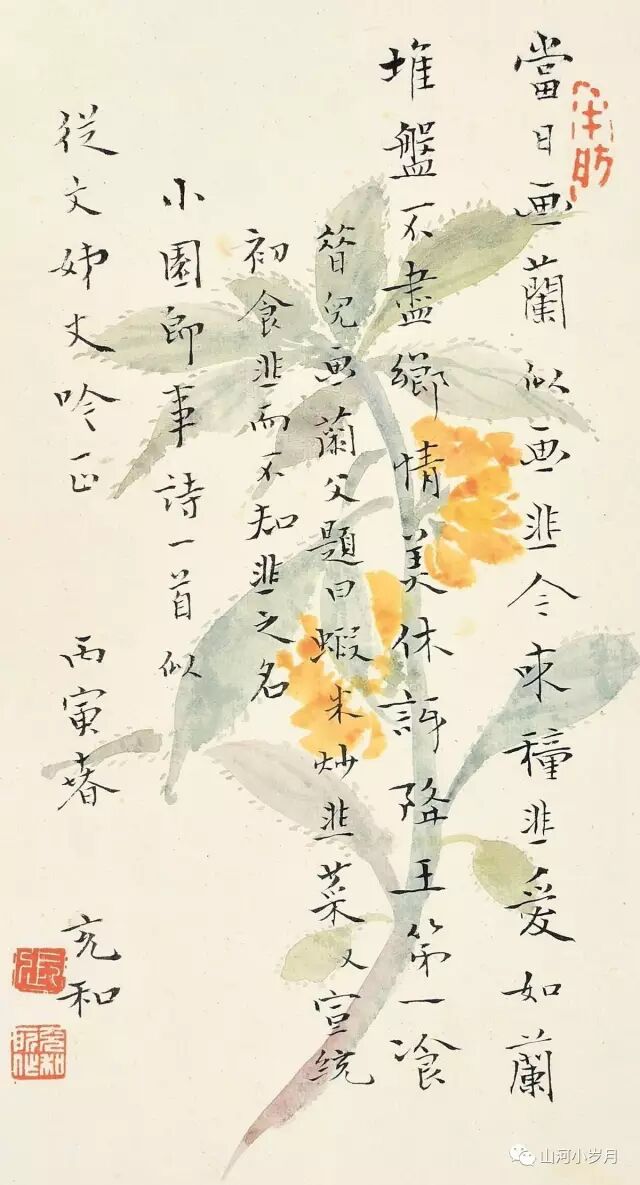 當日画蘭似画韭今來種韭愛如蘭
堆盤不盡鄉情美休訝降王第一飡
昔兒画蘭父題曰蝦米炒韭菜又宣統
初食韭而不知韭之名
小園即事詩一首似
從文姊丈吟正 丙寅春 充和
山河小岁月